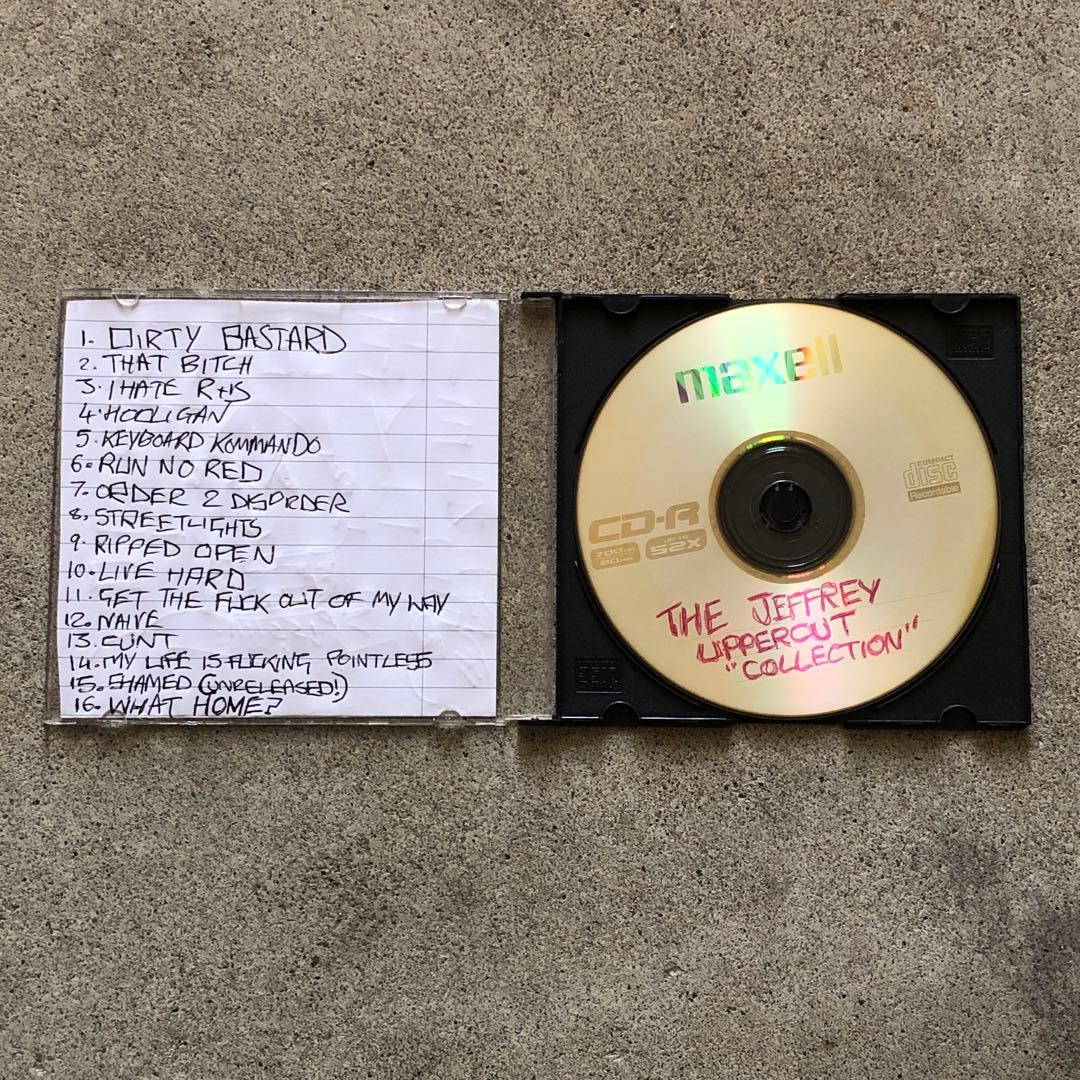 1. DIRTY BASTARD
2. THAT BITCH
3. I HATE R+S
4. HOOLIGAN
5. KEYBOARD KOMMANDO
6. RUN NO RED
7. ORDER 2 DISORDER
8. STREETLIGHTS
9. RIPPED OPEN
10. LIVE HARD
11. GET THE FUCK OUT OF MY WAY
12. NAIVE
13. CUNT
14. MY LIFE IS FUCKING POINTLESS
15. SHAMED (UNRELEASED!)
16. WHAT HOME?
maxell
COMPACT
disc
Recordable
CD-R
700MB
80MIN
UP TO
52X
THE JEFFREY
UPPERCUT
"COLLECTION"